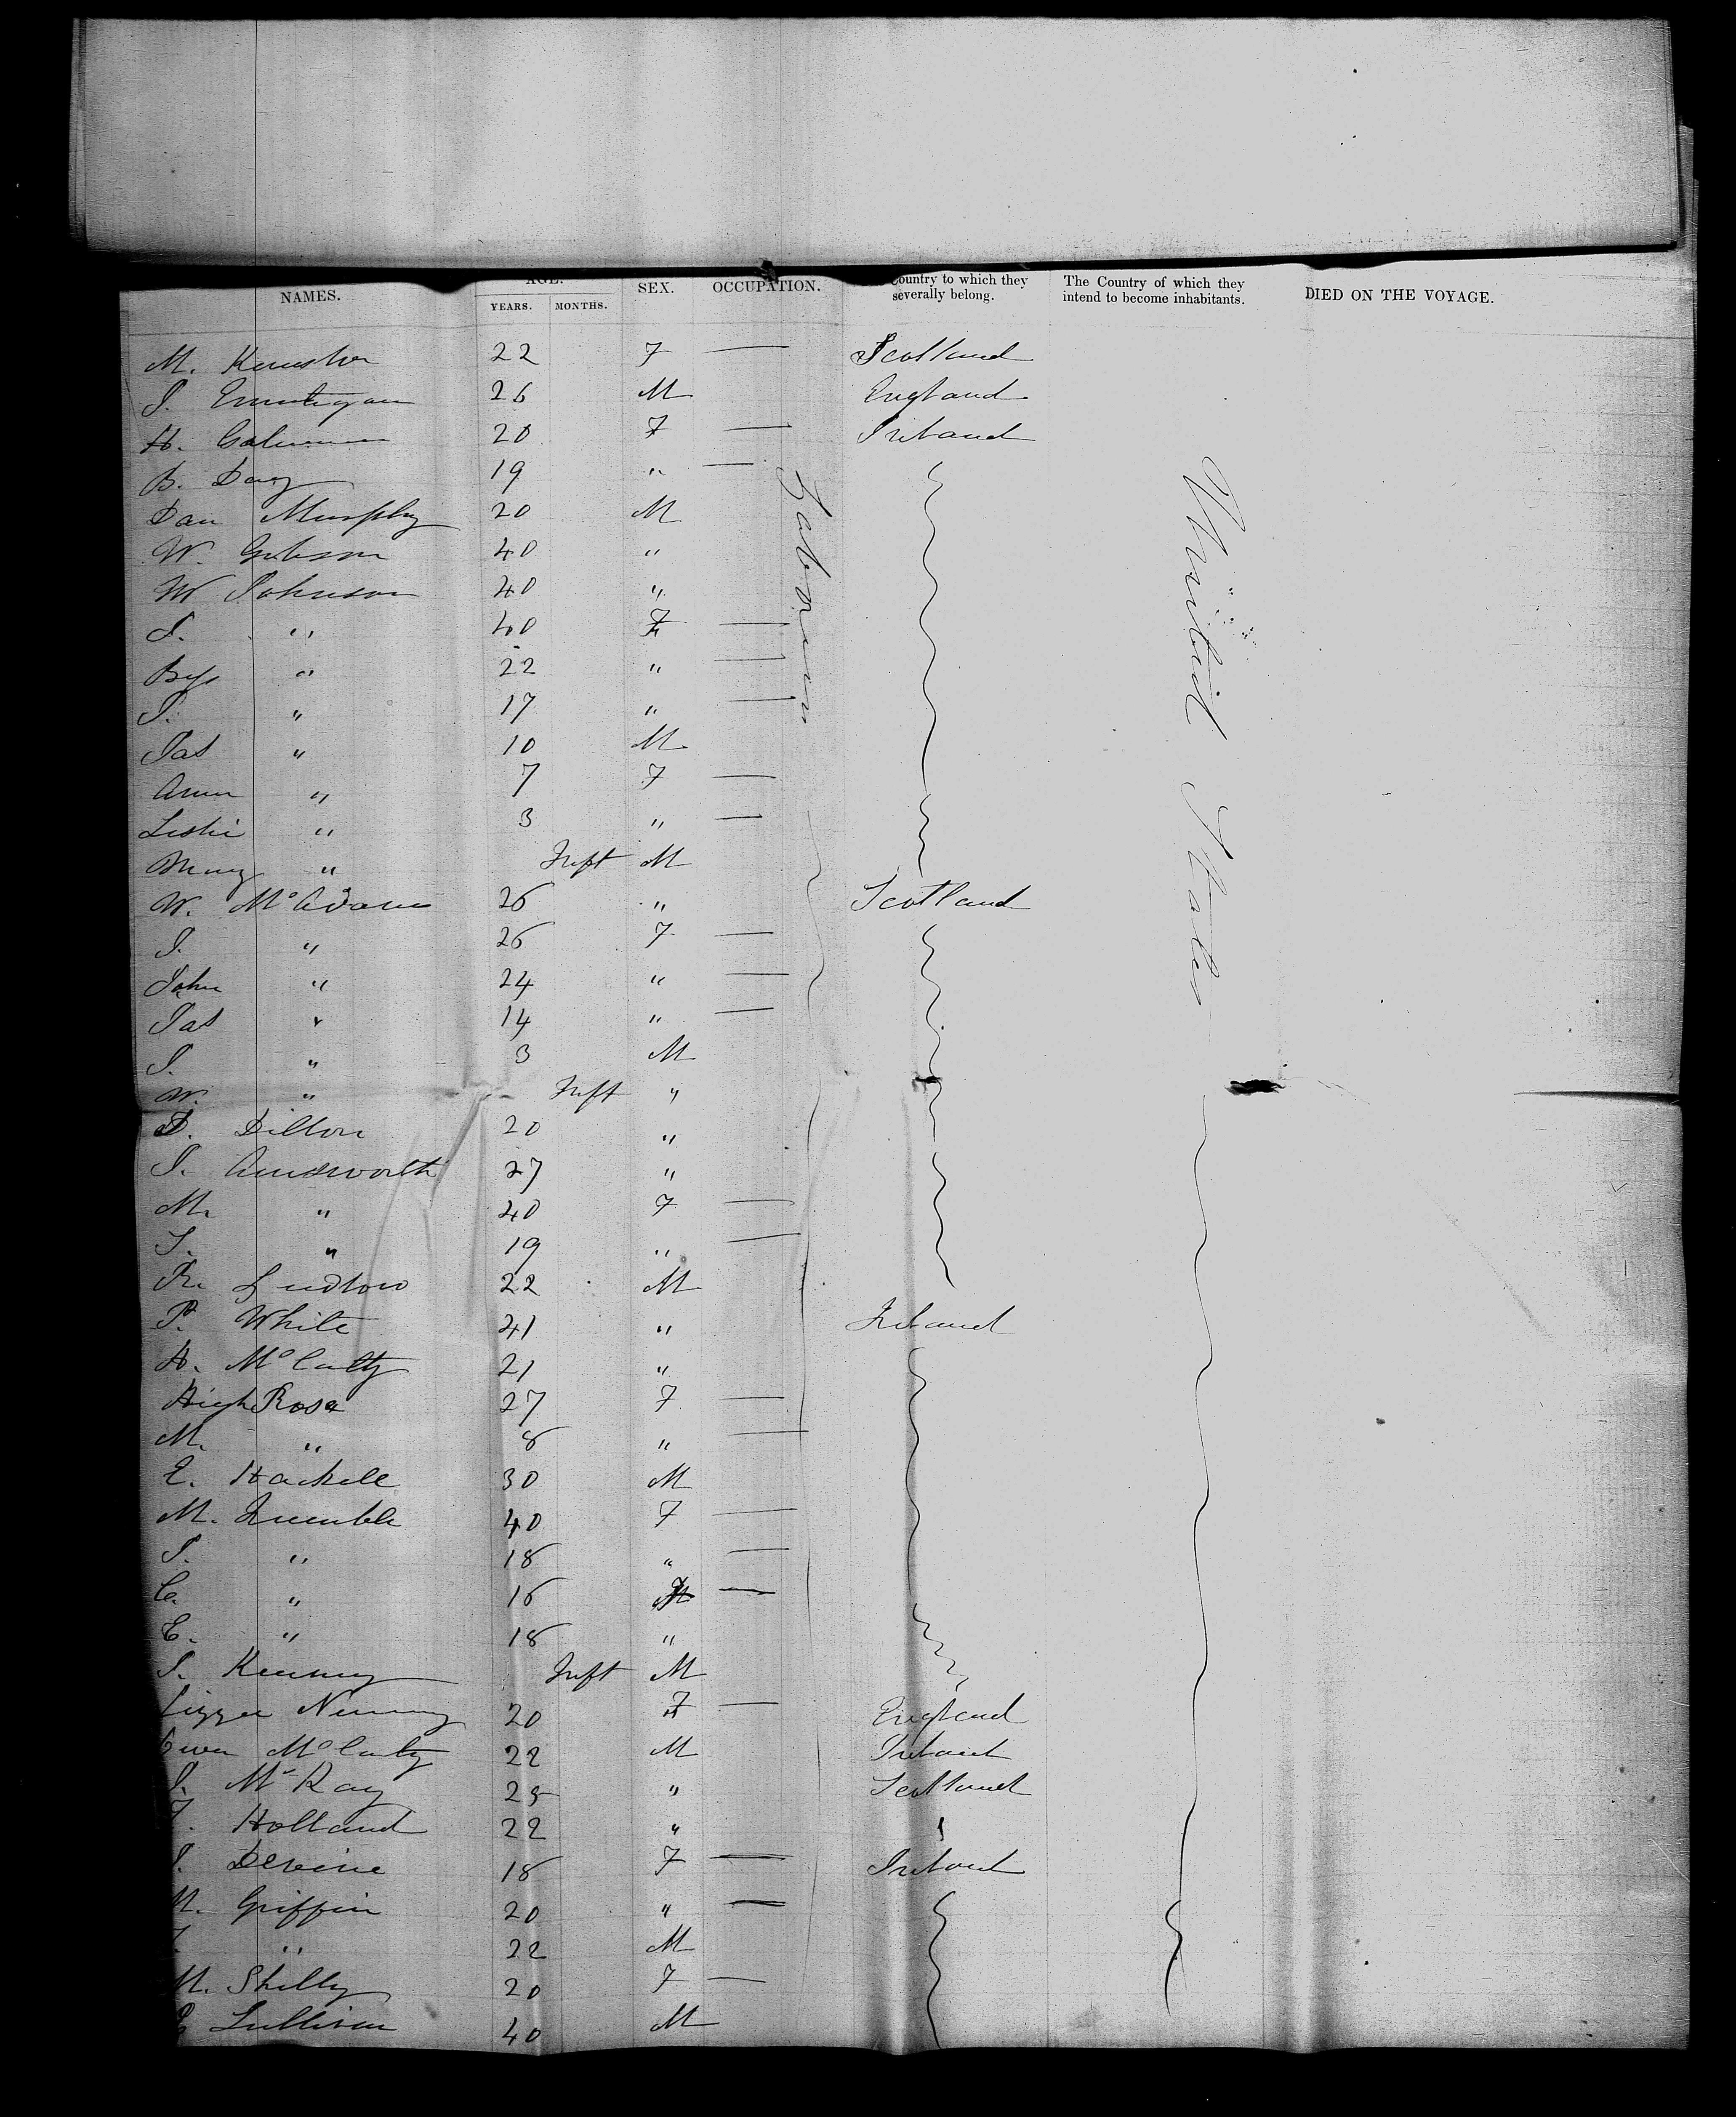 NAMES. AGE. SEX. OCCUPATION. Country to which they severally belong. The Country of which they intend to become inhabitants. DIED ON THE VOYAGE.
YEARS. MONTHS.
M. 22 F — Scotland
J. 26 M England
H. 20 F — Ireland
B. 19 " —
Dan Murphy 20 M
W. Gibson 40 "
W Johnson 40 "
S. " 40 F —
Bess " 22 " —
J. " 17 " —
Jas " 10 M
Ann " 7 F —
Leslie " 3 " —
Mary " Inft M
W. McAdams 26 " Scotland
J. " 26 F —
John " 24 " —
Jas " 14 " —
J. " 3 M
W. " Inft "
D. Dillon 20 "
J. Ainsworth 27 "
M. " 40 F —
S. " 19 " —
R. Ludlow 22 M
P. White 41 " Ireland
H. McCarty 21 "
Hugh Rose 27 F —
M. " 8 " —
E. 30 M
M. 40 F —
J. " 18 " —
C. " 16 F —
E. " 18 "
J. Kenny Inft M
Lizzie 20 F — England
Owen McCarty 22 M Ireland
J. McKay 25 " Scotland
Holland 22 " "
J. Devine 18 F — Ireland
M. Griffin 20 " —
" 22 M
M. Skilly 20 F —
Sullivan 40 M
Laborers
United States